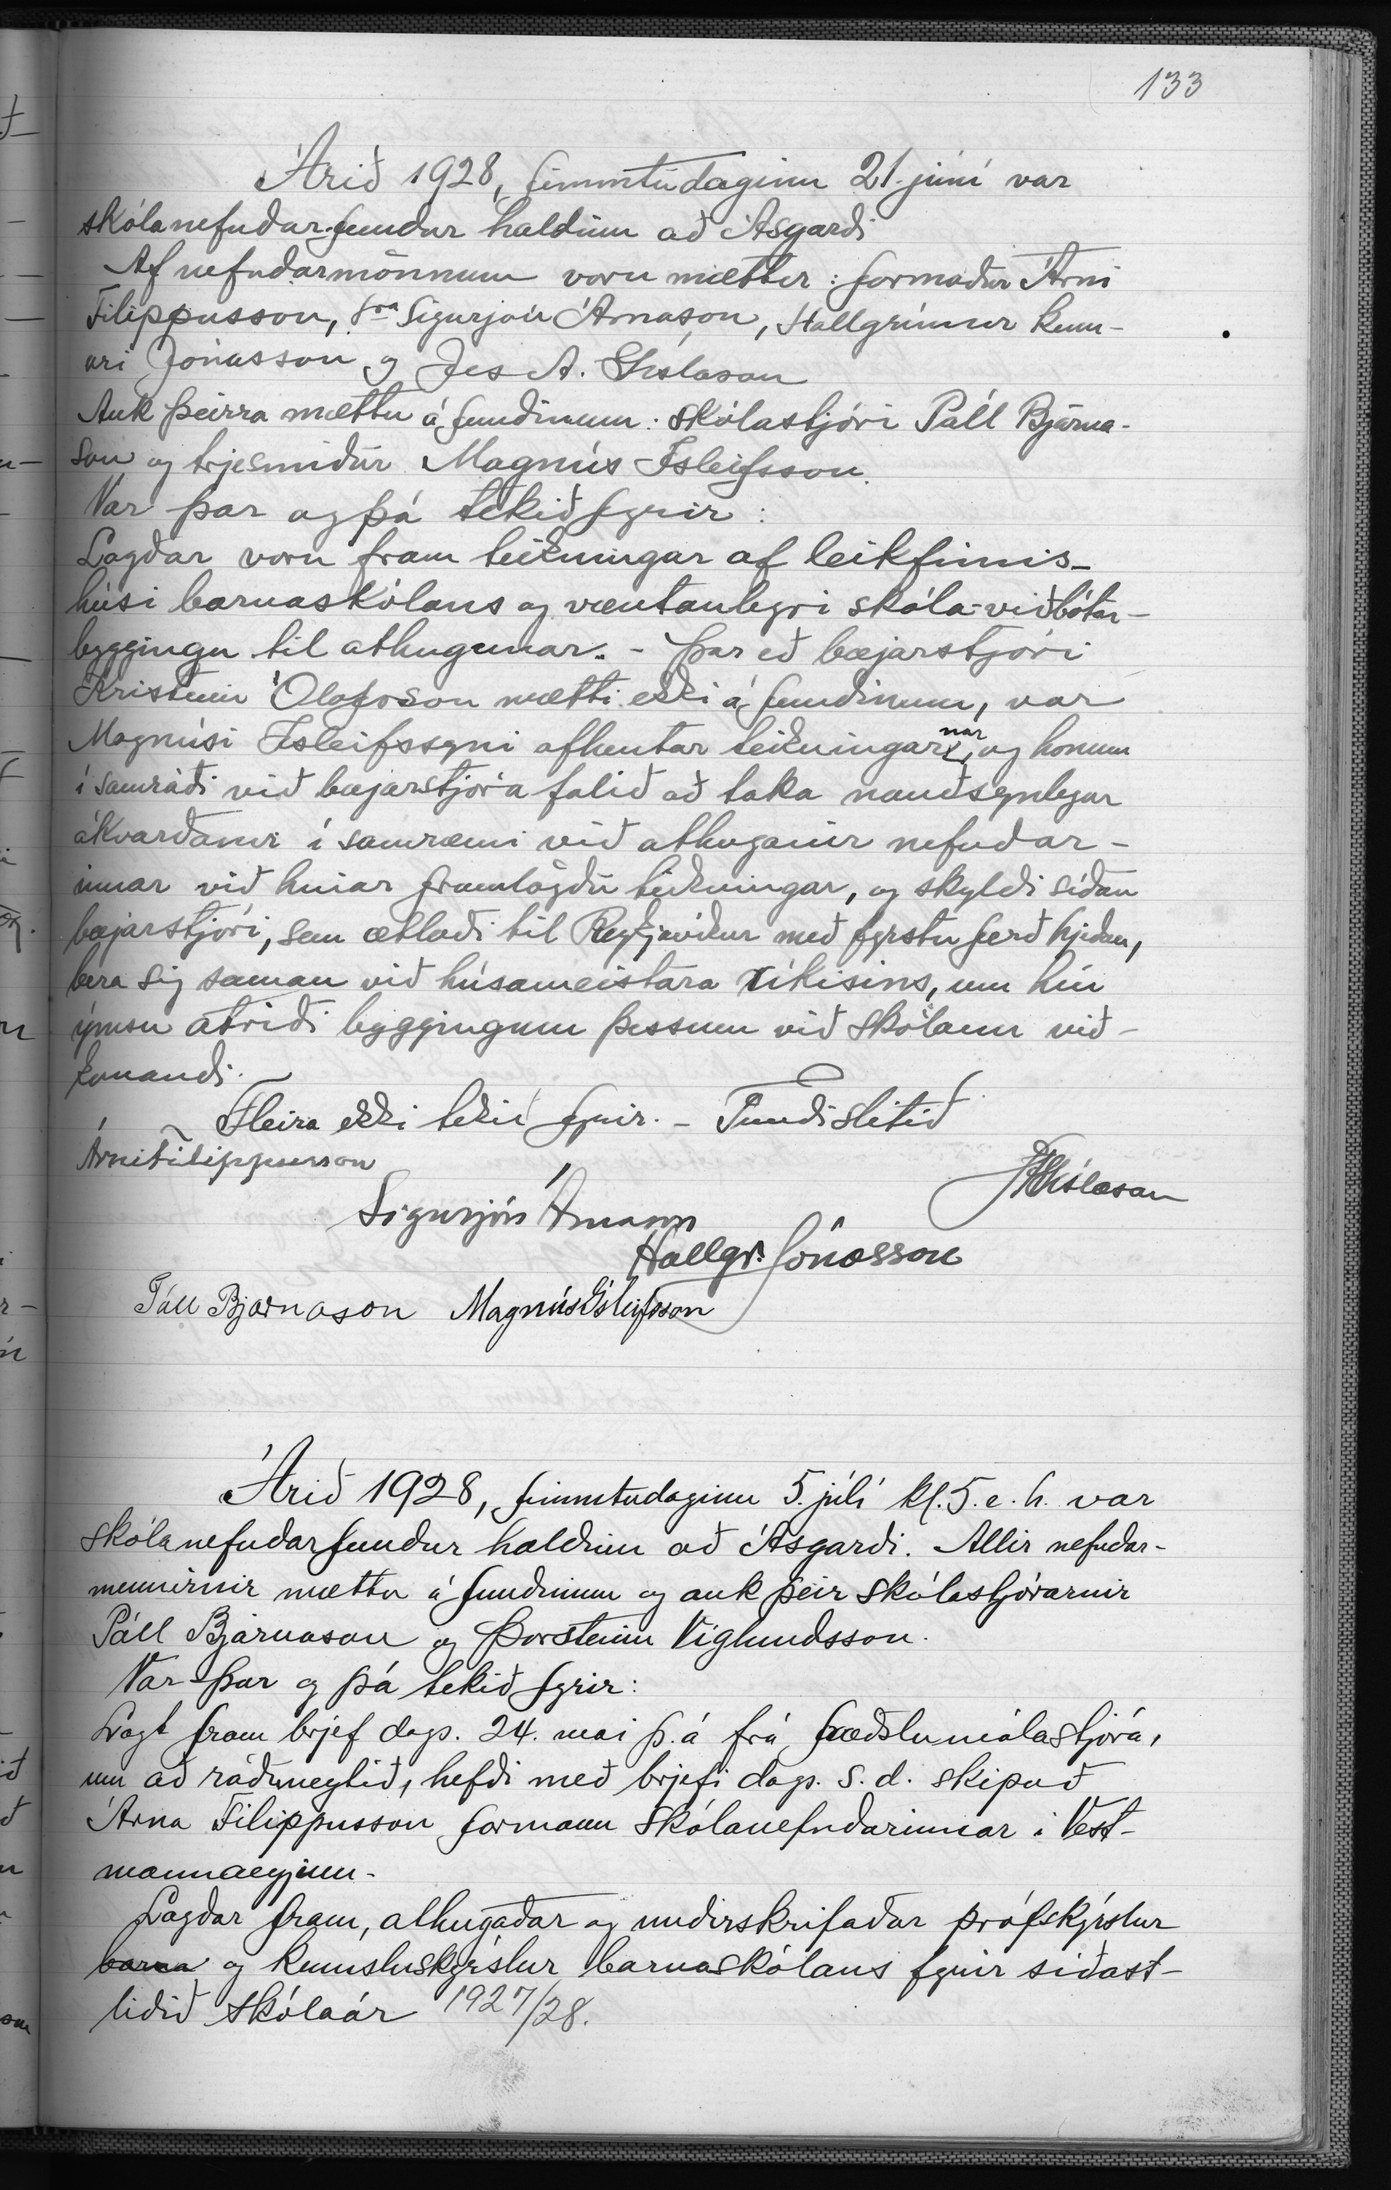 133
Árið 1928, fimmtudaginn 21. júní var
skólanefndarfundur haldinn að Ásgarði
Af nefndarmönnum voru mættir: formaður Árni
Filippusson, sra Sigurjón Árnason, Hallgrímur kenn-
ari Jónasson og Jes A. Gíslason
Auk þeirra mættu á fundinum: skólastjóri Páll Bjarna-
son og trjesmiður Magnús Ísleifsson.
Var þar og þá tekið fyrir:
Lagðar voru fram teikningar af leikfimis-
húsi barnaskólans og væntanlegri skóla-viðbótar-
byggingu til athugunar. - Þar eð bæjarstjóri
Kristinn Ólafsson mætti ekki á fundinum, var
Magnúsi Ísleifssyni afhentar teikningarnar, og honum
í samráði við bæjarstjóra falið að taka nauðsynlegar
ákvarðanir í samræmi við athuganir nefndar-
innar við hinar framlögðu teikningar, og skyldi síðan
bæjarstjóri, sem ætlaði til Reykjavíkur með fyrstu ferð hjeðan,
bera sig saman við húsameistara ríkisins, um hin
ýmsu atriði byggingum þessum við skólann við-
komandi.
Fleira ekki tekið fyrir. - Fundi slitið
Árni Filippusson
JAGíslason
Sigurjón Árnason
Hallgr. Jónasson
Páll Bjarnason Magnús Ísleifsson
Árið 1928, fimmtudaginn 5. júlí kl. 5. e. h. var
skólanefndarfundur haldinn að Ásgarði. Allir nefndar-
mennirnir mættu á fundinum og auk þeir skólastjórarnir
Páll Bjarnason og Þorsteinn Víglundsson.
Var þar og þá tekið fyrir:
Lagt fram brjef dags. 24. maí þ. á frá fræðslumálastjóra,
um að ráðuneytið, hefði með brjefi dags. s. d. skipað
Árna Filippusson formann skólanefndarinnar í Vest-
mannaeyjum -
Lagðar fram, athugaðar og undirskrifaðar prófskýrslur
barna og kennsluskýrslur barnaskólans fyrir síðast-
liðið skólaár 1927/28.